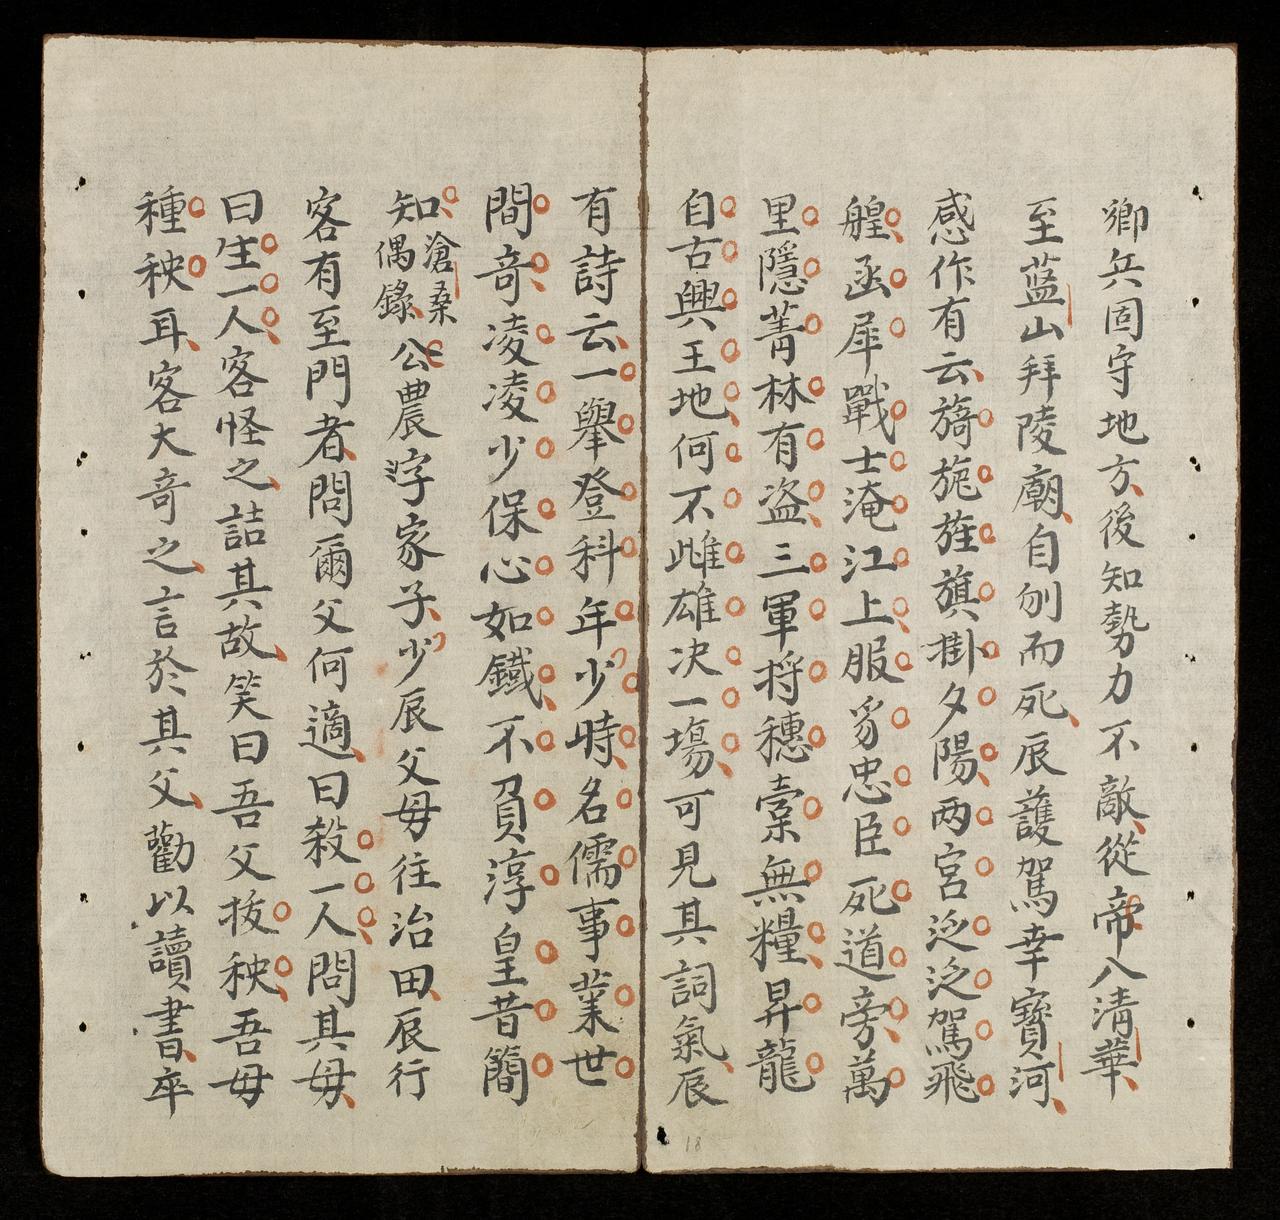 鄉兵固守地方後知勢力不敵從帝入清華
至藍山拜陵廟自刎而死辰護駕幸寶河
感作有云旖旎旌旗掛夕陽兩宮泛泛駕飛
艎函犀戰士淹江上服豸忠臣死道旁萬
里隱菁林有盗三軍将穗橐無糧昇龍
自古興王地何不雌雄决一塲可見其詞氣辰
有詩云一舉登科年少時名儒事業世
間奇凌凌少保心如鐵不負淳皇昔簡
知滄桑偶錄公農字家子少辰父毋往治田辰行
客有至門者問爾父何適曰殺一人問其毋
曰生一人客怪之詰其故笑曰吾父抜秧吾毋
種秧耳客大奇之言於其父勸以讀書卒
18